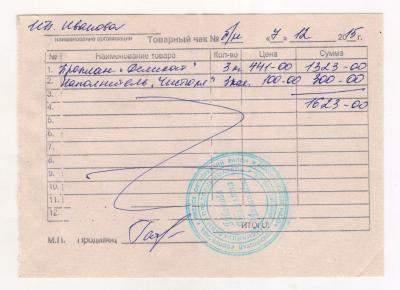 ИП. Иванова
наименование организации
Товарный чек № б/н " 7 " 12 2015 г.
№ Наименование товара Кол-во Цена Сумма
1. Проплан „Деликат" 3 441-00 1323-00
2. Наполнитель „Чистоля" 3 100-00 300-00
3.
4. 1623-00
5.
6.
7.
8.
9.
10.
11.
12.
ИТОГО:
М.П. Продавец